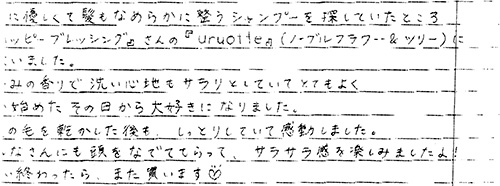 に優しくて髪もなめらかに整うシャンプーを探していたところ
ハッピーブレッシング』さんの『uruotte』(ノーブルフラワー&ツリー)に
いました。
みの香りで洗い心地もサラリとしていてとてもよく
い始めたその日から大好きになりました。
の毛を乾かした後も、しっとりしていて感動しました。
なさんにも頭をなでてもらって、サラサラ感を楽しみましたよ!
い終わったら、また買います♡